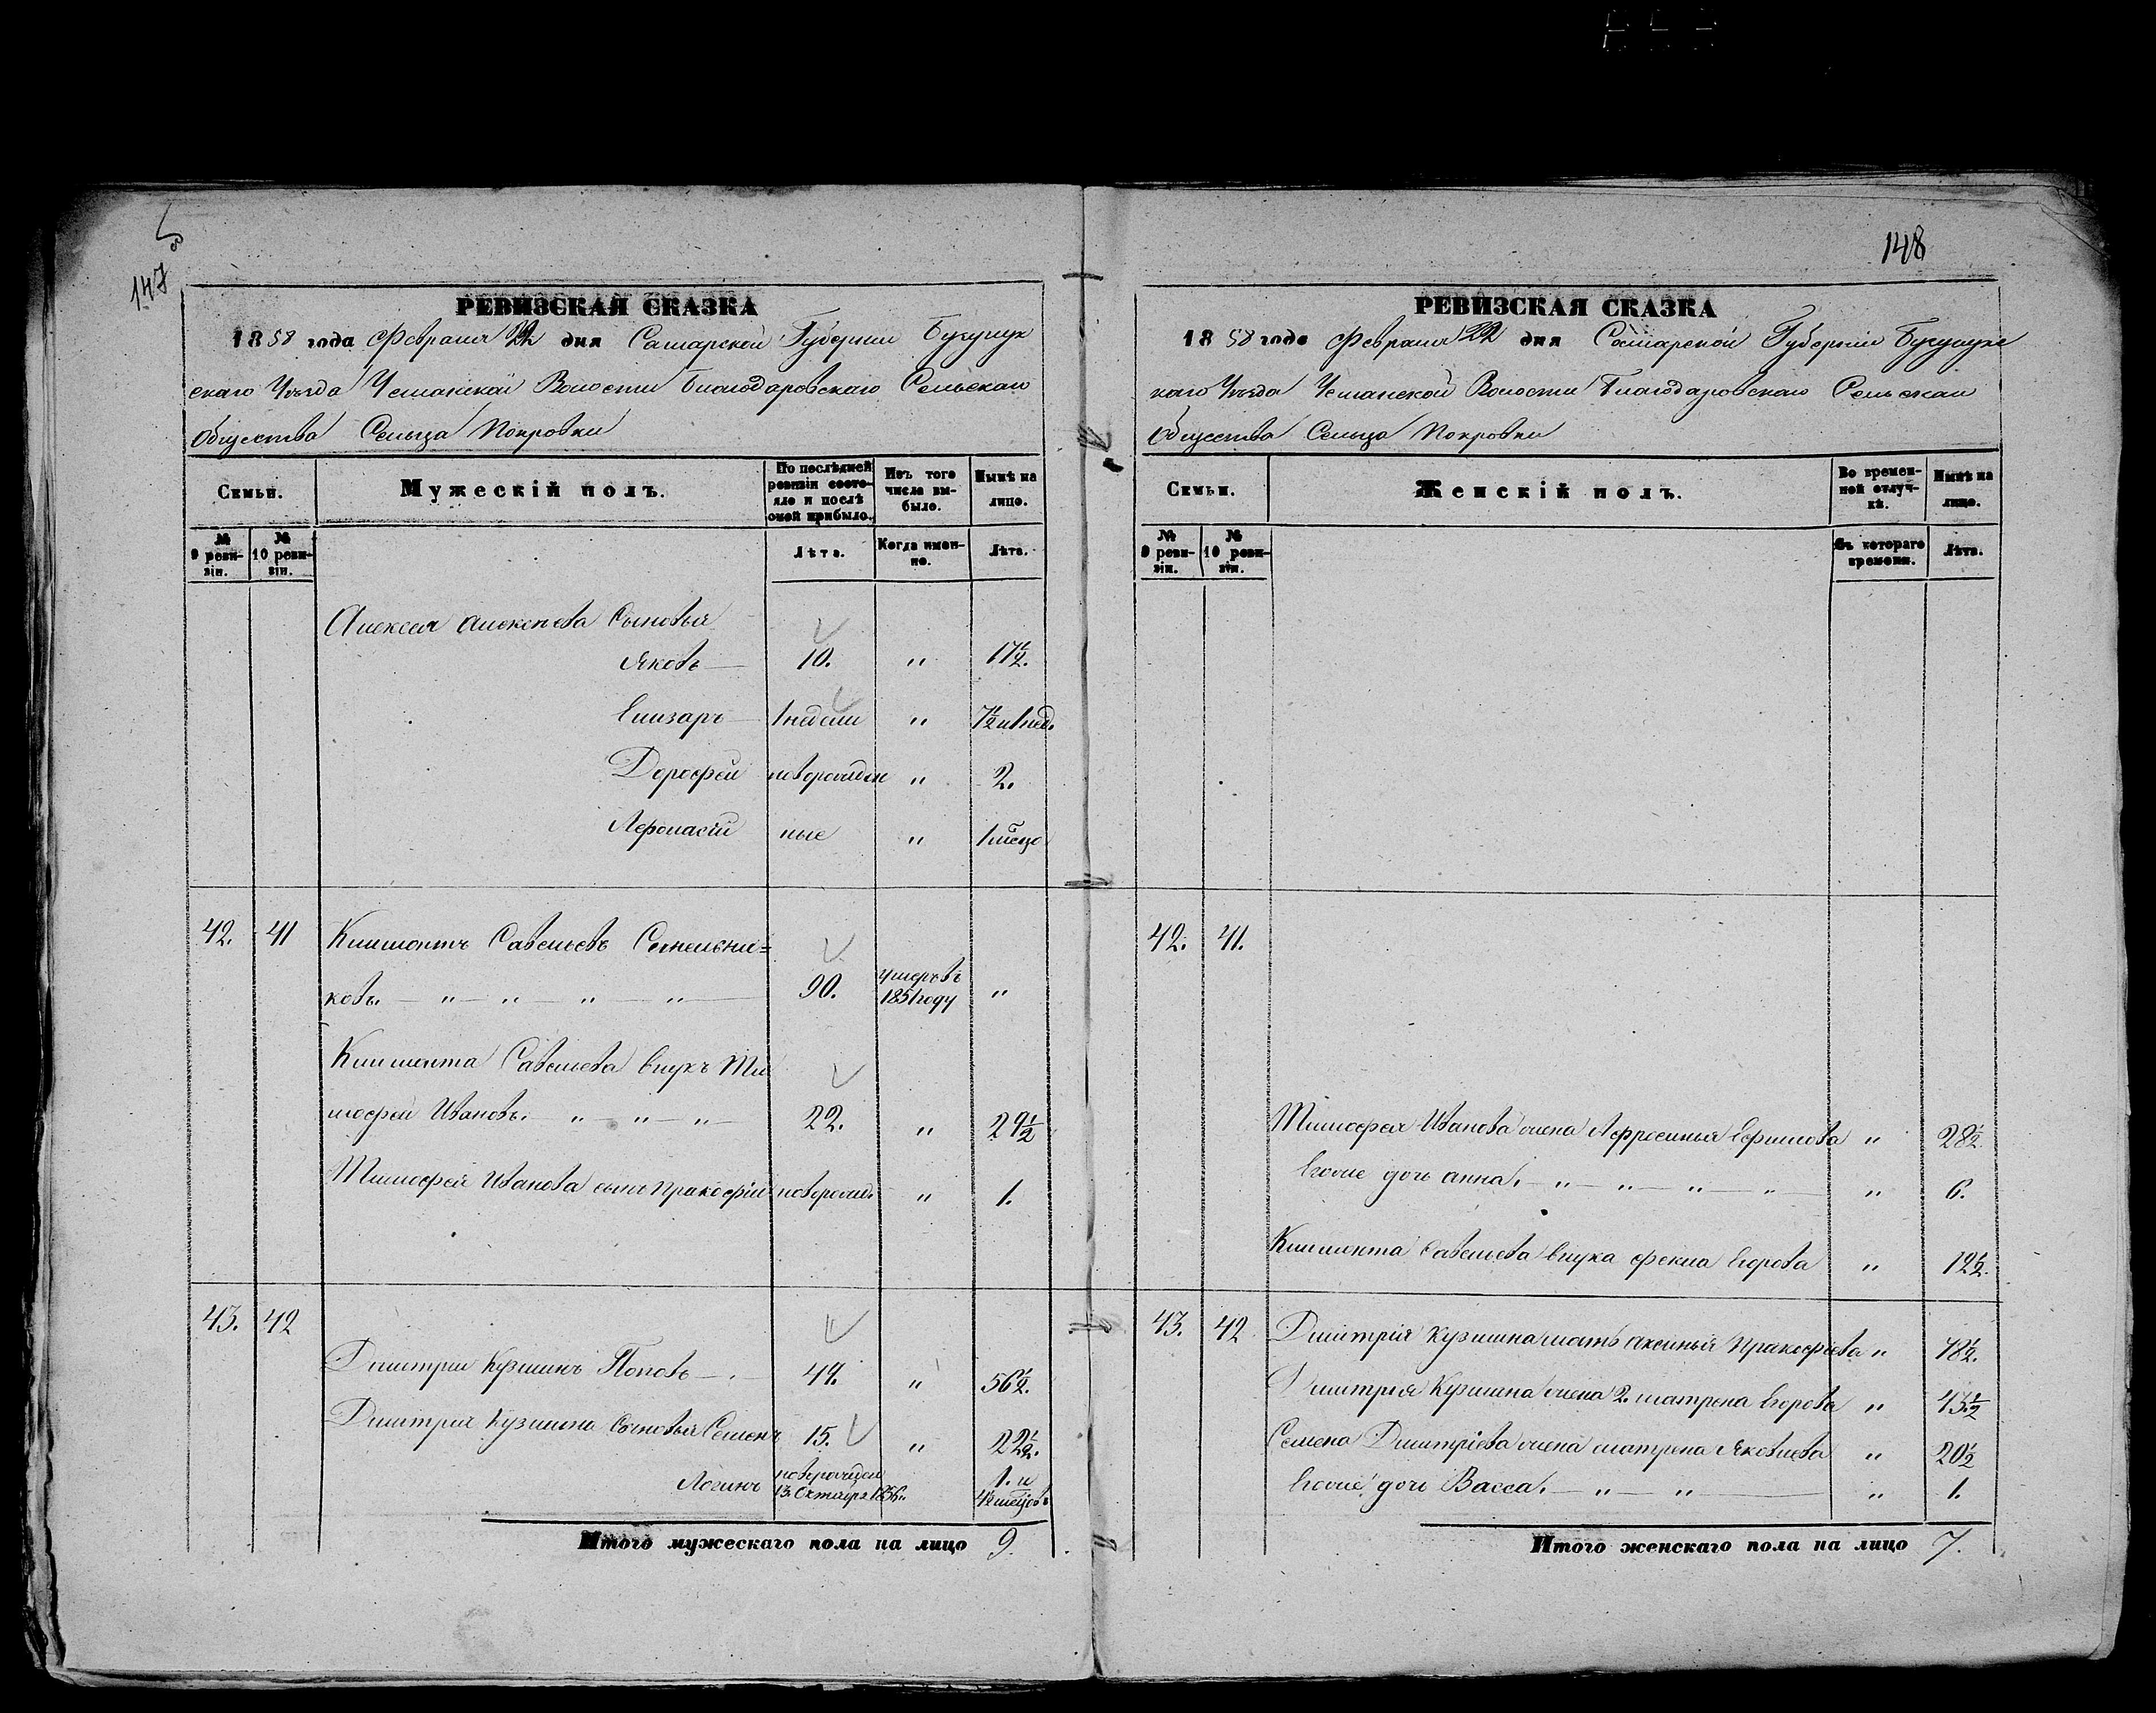 147
РЕВИЗСКАЯ СКАЗКА
1858 года Февраля 22 дня Самарской Губернии Бугурук
скаго Уезда Чеманской Волости Благодаровскаго Сельскаго
Общества Сельца Покровки
Семьи.
Мужескій полъ.
По послѣдней ревизіи состояло и послѣ оной прибыло.
Изъ того числа выбыло.
Нынѣ на лицо.
№ 9 ревизіи.
№ 10 ревизіи.
Лѣта.
Когда именно.
Лѣта.
Алексея Алексѣева Сыновья
Яковъ — 10. " 17½.
Елизаръ — 1 недели " 7½ и 1 нед.
Дорофей новорожден " 2.
Афонасій ные " 1 месец
42. 41 Климонтъ Савельевъ Сательни=
ковъ. — " — " — " — " — 90. умеръ въ 1851 году "
Климонта Савельева внукъ Ти
мофей Ивановъ. — " — " — " 22. " 29½
Тимофея Иванова сынъ Пракофій новорожд. " 1.
43. 42
Дмитрий Кузминъ Поповъ — . 49. " 56½.
Дмитрия Кузмина Сыновья Семенъ 15. " 22½.
Логинъ новорожден 13. Октября 1856. 1. и 4½ месецов.
Итого мужескаго пола на лицо 9.
148
РЕВИЗСКАЯ СКАЗКА
1858 года Февраля 22 дня Самарской Губерніи Бугурукс
каго Уезда Чеманской Волости Благодаровскаго Сельскаго
Общества Сельца Покровки
Семьи.
Женскій полъ.
Во временной отлучкѣ.
Нынѣ на лицо.
№ 9 ревизіи.
№ 10 ревизіи.
Съ котораго времени.
Лѣта.
42. 41.
Тимофея Иванова жена Афросинья Ефимова " 28½.
Егоже дочь анна. — " — " — " — " — " 6.
Климонта Савельева внука фекла Егорова " 12½.
43. 42 Дмитрія Кузмина мать Аксинья Пракофьева " 78½.
Дмитрия Кузмина жена 2. матрена Егорова " 43½
Семена Дмитріева жена матрена Яковлева " 20½
Егоже дочь Васса. — " — " — " 1.
Итого женскаго пола на лицо 7.